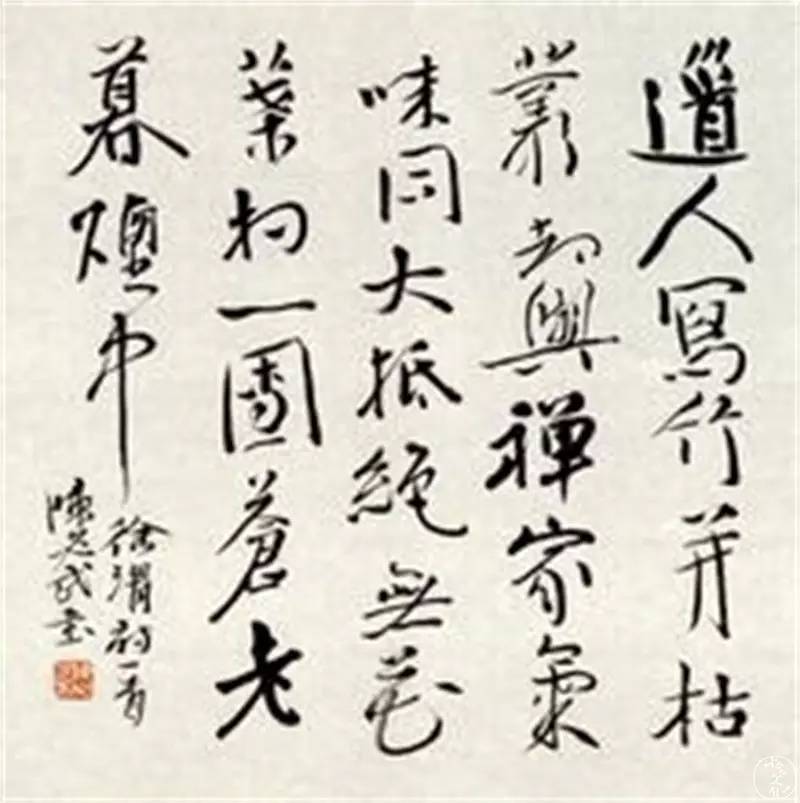 道人寫竹并枯
叢却與禪家氣
味同大抵絕無花
葉相一團蒼老
暮煙中
徐渭詩一首
陳武書